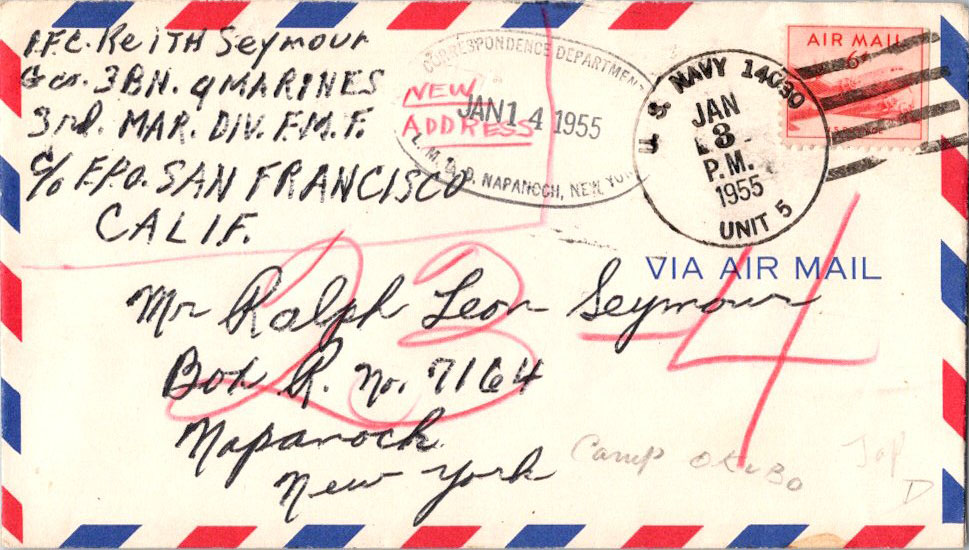 P.F.C. KeiTH Seymour
G co. 3 BN. 9 MARINES
3rd. MAR. DIV. F.M.F.
c/o F.P.O. SAN FRANCISCO
CALIF.
CORRESPONDENCE DEPARTMENT
NEW
ADDRESS
JAN 14 1955
NAPANOCH, NEW YORK
U. S. NAVY 14030
JAN
3
P.M.
1955
UNIT 5
AIR MAIL
6¢
VIA AIR MAIL
23-4
Mr Ralph Leon Seymour
Box R. No. 7164
Napanock
New York
Camp OKUBO
Jap
D